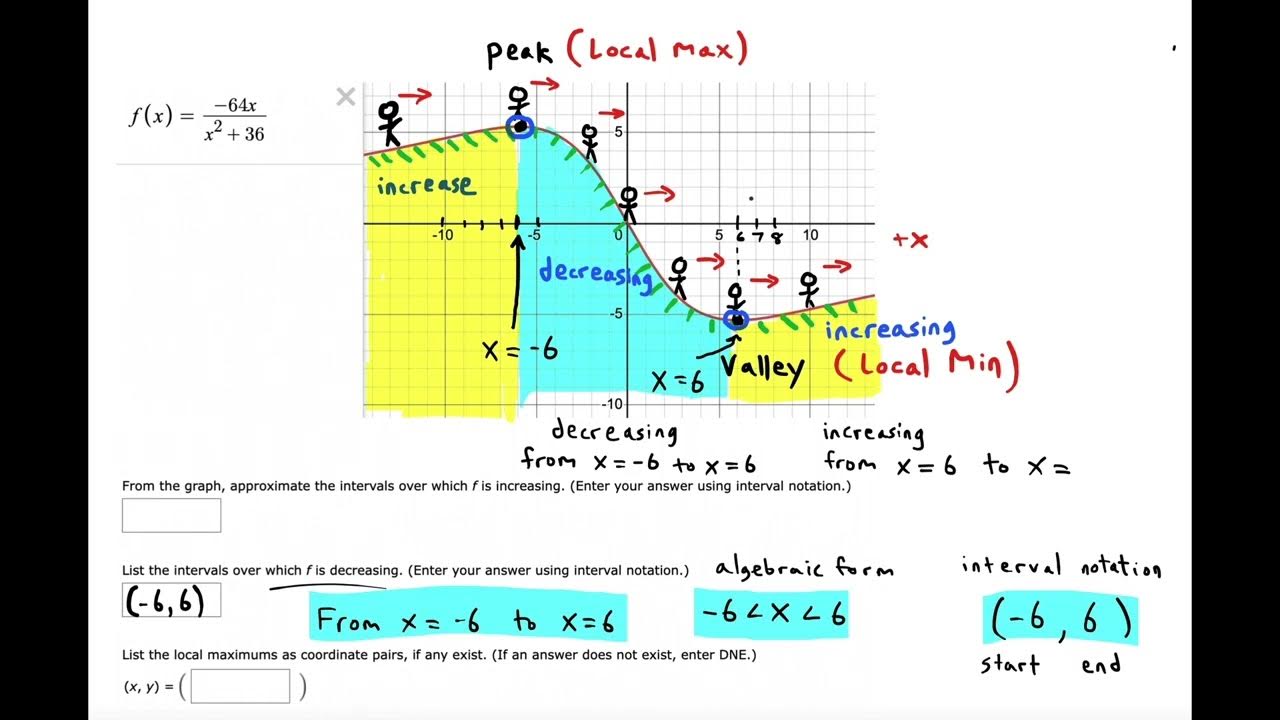 peak (Local Max)
f(x) = -64x / x² + 36
×
5
increase
-10 -5 0 5 6 7 8 10
+x
decreasing
-5
increasing
x = -6
x = 6
Valley (Local Min)
-10
decreasing
from x = -6 to x = 6
increasing
from x = 6 to x =
From the graph, approximate the intervals over which f is increasing. (Enter your answer using interval notation.)
List the intervals over which f is decreasing. (Enter your answer using interval notation.)
algebraic form
interval notation
(-6, 6)
From x = -6 to x = 6
-6 < x < 6
(-6, 6)
start end
List the local maximums as coordinate pairs, if any exist. (If an answer does not exist, enter DNE.)
(x, y) = ( )